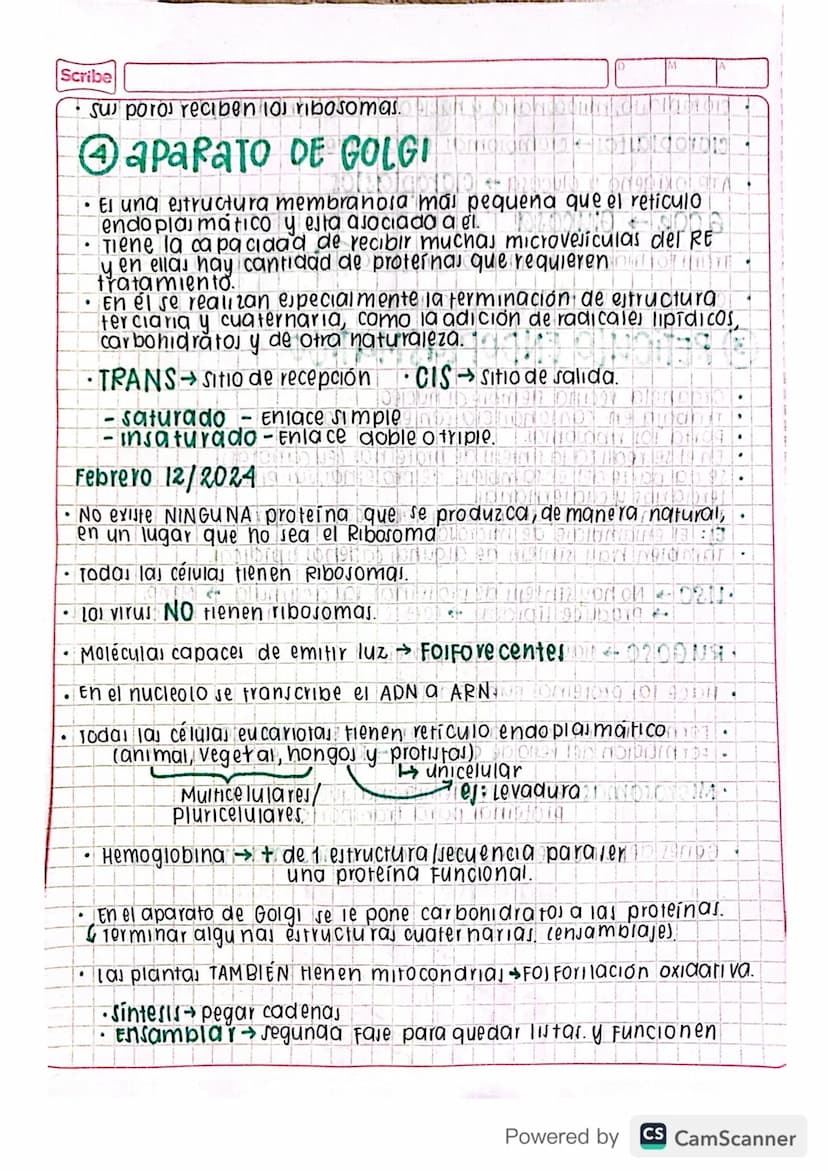 Scribe
D M A
• sus poros reciben los ribosomas.
④ APARATO DE GOLGI
• Es una estructura membranosa más pequeña que el retículo
endoplasmático y esta asociado a él.
• Tiene la capacidad de recibir muchas microvesículas del RE
y en ellas hay cantidad de proteínas que requieren
tratamiento.
• En él se realizan especialmente la terminación de estructura
terciaria y cuaternaria, como la adición de radicales lipídicos,
carbohidratos y de otra naturaleza.
• TRANS → Sitio de recepción • CIS → Sitio de salida.
- saturado - Enlace simple
- insaturado - Enlace doble o triple.
Febrero 12/2024
• No existe NINGUNA proteína que se produzca, de manera natural,
en un lugar que no sea el Ribosoma
• Todas las células tienen Ribosomas.
• Los virus NO tienen ribosomas.
• Moléculas capaces de emitir luz → Fosforecentes
• En el nucleolo se transcribe el ADN a ARN.
• Todas las células eucariotas tienen retículo endoplasmático
(animal, vegetal, hongos y protistas)
↳ unicelular
Multicelulares/ ej: Levadura
pluricelulares.
• Hemoglobina → + de 1 estructura/secuencia para ser
una proteína funcional.
• En el aparato de Golgi se le pone carbohidratos a las proteínas.
↳ Terminar algunas estructuras cuaternarias. (ensamblajes).
• Las plantas TAMBIÉN tienen mitocondrias → Fosforilación oxidativa.
• Síntesis → pegar cadenas
• Ensamblar → segunda fase para quedar listas y funcionen
Powered by CS CamScanner